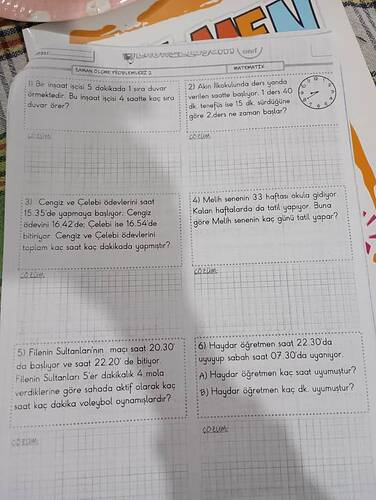 MEN
ZAMAN ÖLÇME PROBLEMLERİ 2
MATEMATİK
1) Bir inşaat işçisi 5 dakikada 1 sıra duvar
örmektedir. Bu inşaat işçisi 4 saatte kaç sıra
duvar örer?
ÇÖZÜM:
2) Akın İlkokulunda ders yanda
verilen saatte başlıyor. 1 ders 40
dk. tenefüs ise 15 dk. sürdüğüne
göre 2.ders ne zaman başlar?
ÇÖZÜM:
3) Cengiz ve Çelebi ödevlerini saat
15.35'de yapmaya başlıyor. Cengiz
ödevini 16.42'de; Çelebi ise 16.54'de
bitiriyor. Cengiz ve Çelebi ödevlerini
toplam kaç saat kaç dakikada yapmıştır?
ÇÖZÜM:
4) Melih senenin 33 haftası okula gidiyor.
Kalan haftalarda da tatil yapıyor. Buna
göre Melih senenin kaç günü tatil yapar?
ÇÖZÜM:
5) Filenin Sultanları'nın maçı saat 20.30'
da başlıyor ve saat 22.20' de bitiyor.
Filenin Sultanları 5'er dakikalık 4 mola
verdiklerine göre sahada aktif olarak kaç
saat kaç dakika voleybol oynamışlardır?
ÇÖZÜM:
6) Haydar öğretmen saat 22.30'da
uyuyup sabah saat 07.30'da uyanıyor.
A) Haydar öğretmen kaç saat uyumuştur?
B) Haydar öğretmen kaç dk. uyumuştur?
ÇÖZÜM: